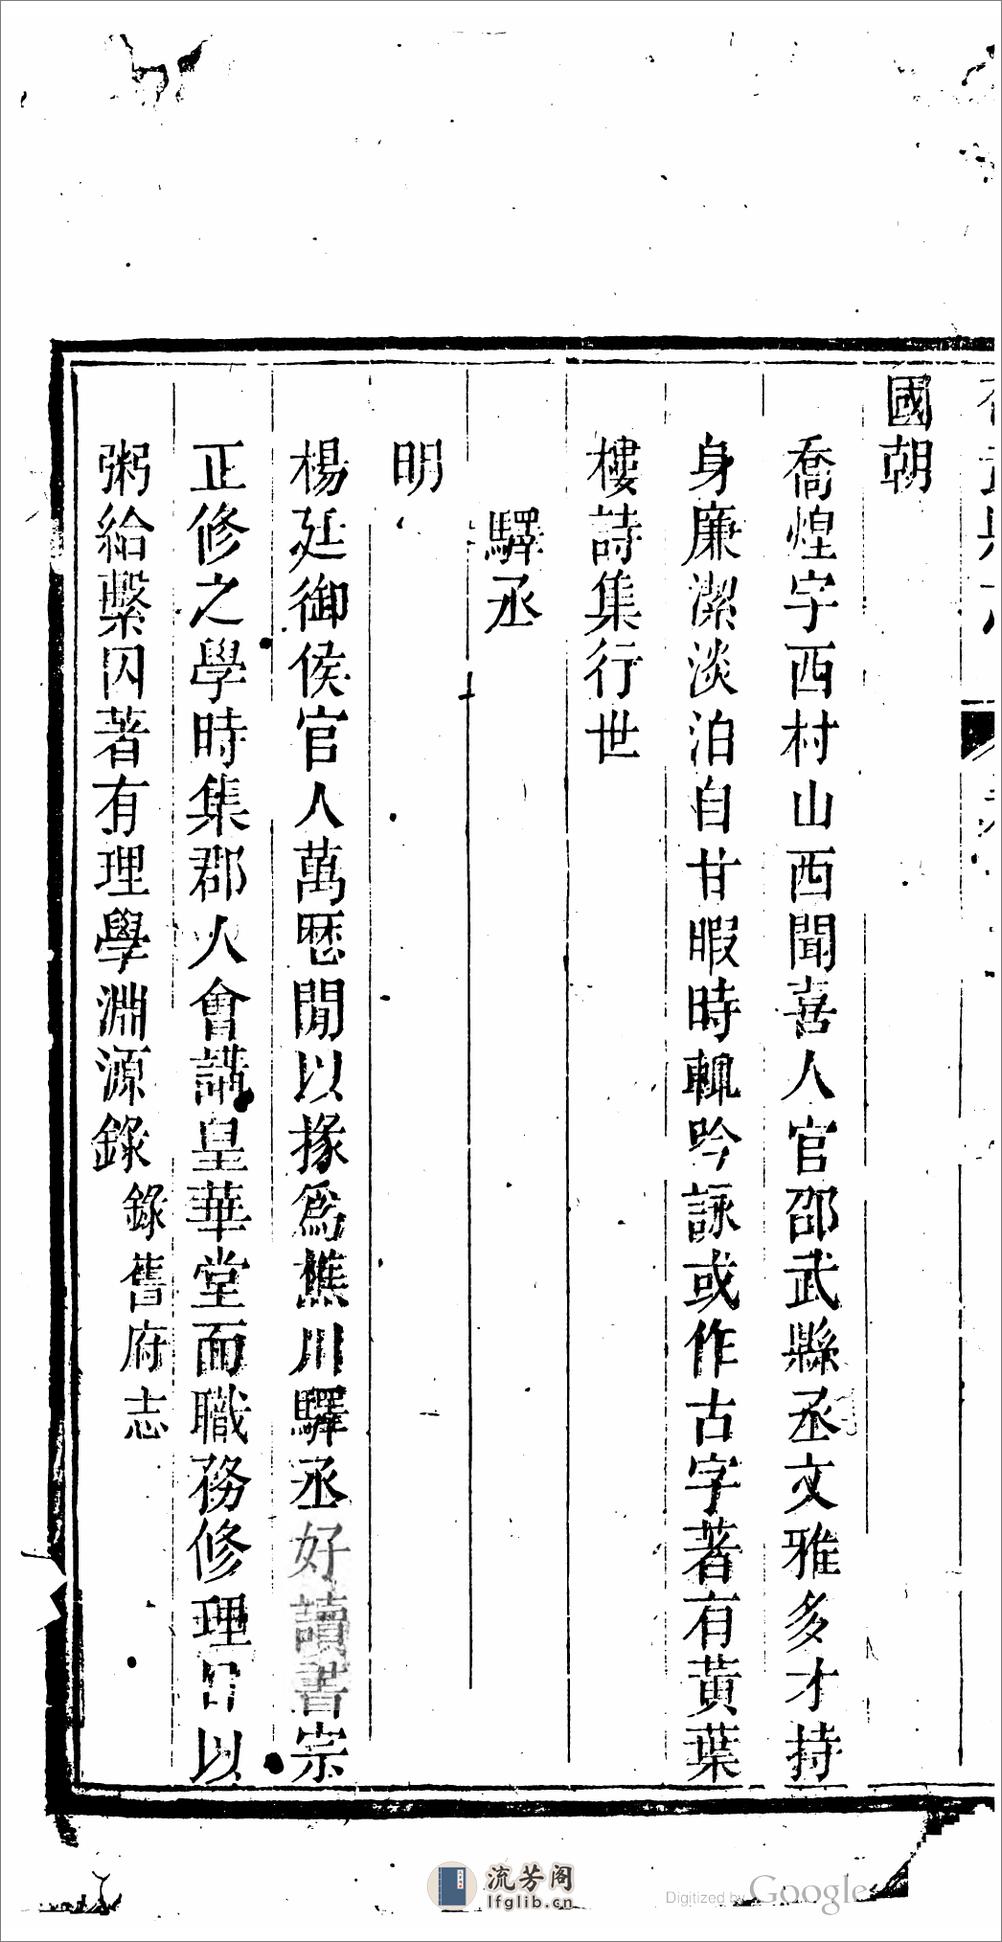 國朝
喬煌字西村山西聞喜人官邵武縣丞文雅多才持
身廉潔淡泊自甘暇時輒吟詠或作古字著有黃葉
樓詩集行世
驛丞
明
楊廷御侯官人萬厯閒以掾爲樵川驛丞好讀書宗
正修之學時集郡人會講皇華堂面職務修理日以
粥給繫囚著有理學淵源錄 錄舊府志
流芳阁
lfglib.cn
Digitized by Google